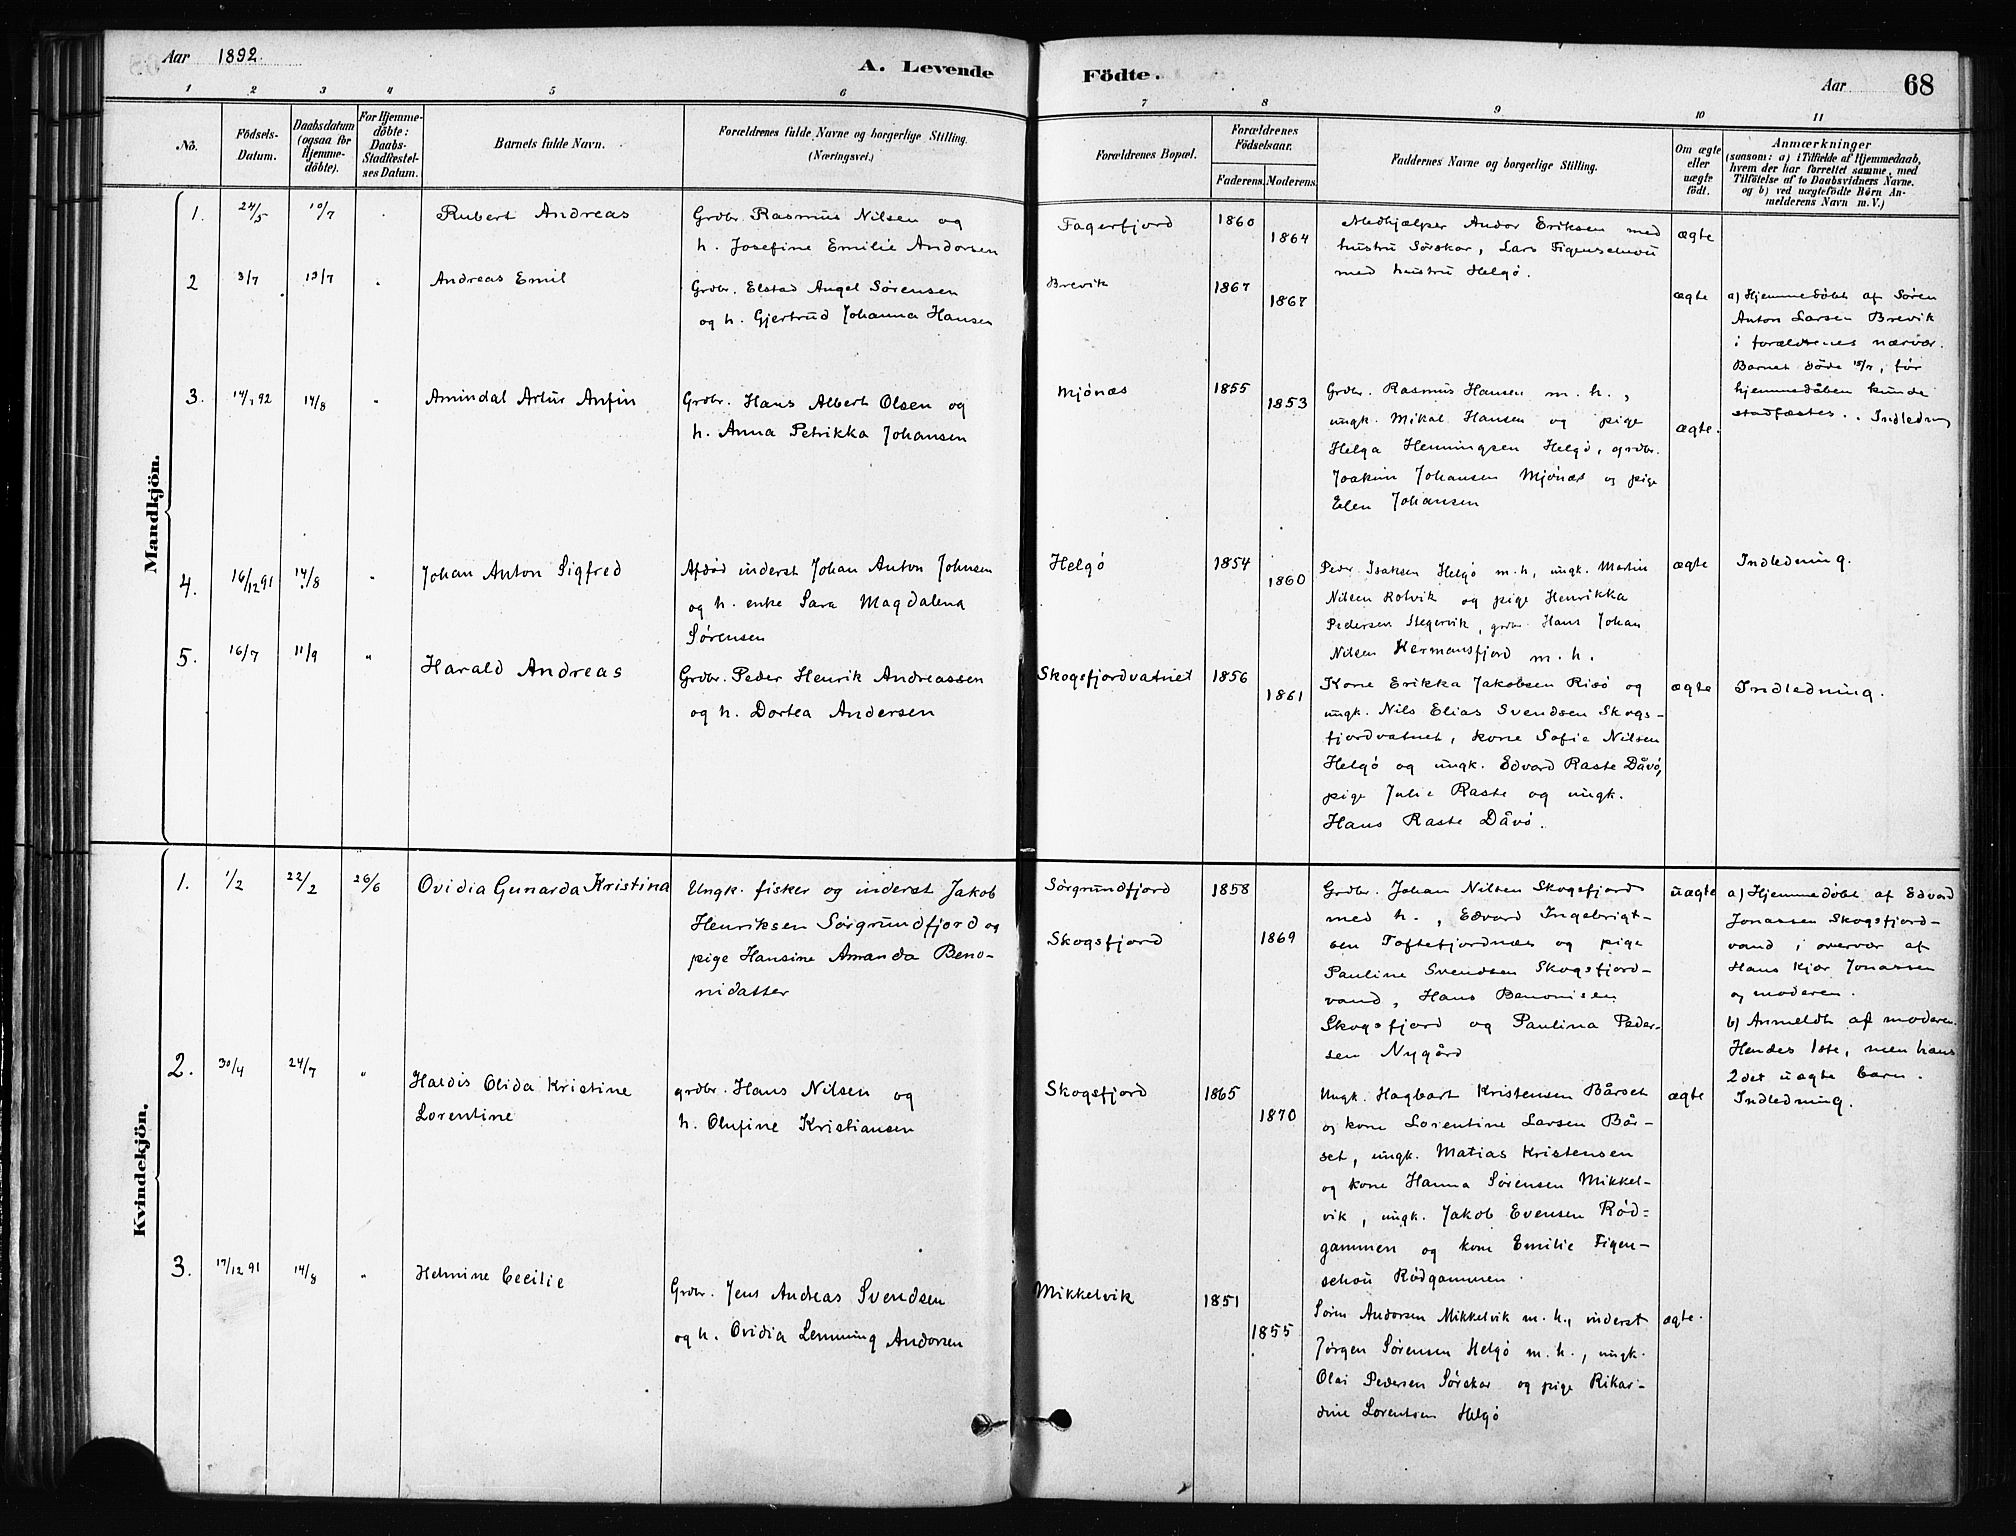 Aar 1892.
A. Levende Födte.
Aar 68
1 2 3 4 5 6 7 8 9 10 11
No.
Födsels-Datum.
Daabsdatum (ogsaa for Hjemmedöbte).
For Hjemmedöbte: Daabs-Stadfæstelses Datum.
Barnets fulde Navn.
Forældrenes fulde Navne og borgerlige Stilling.
(Næringsvei.)
Forældrenes Bopæl.
Forældrenes Födselsaar.
Faderens. Moderens.
Faddernes Navne og borgerlige Stilling.
Om ægte eller uægte födt.
Anmærkninger
(saasom: a) i Tilfælde af Hjemmedaab,
hvem der har forrettet samme, med
Tilföielse af to Daabsvidners Navne.
og b) ved uægtefödte Börn An-
melderens Navn m. V.)
Mandkjön.
1. 24/5 10/7 Rubert Andreas
Grdbr. Rasmus Nilsen og
h. Josefine Emilie Andorsen
Fagerfjord 1860 1864
Medhjælper Andor Eriksen med
hustru Sørskar, Lars Figenschou
med hustru Helgø.
ægte
2 3/7 13/7 " Andreas Emil
Grdbr. Elstad Angel Sørensen
og h. Gjertrud Johanna Hansen
Brevik 1867 1867
ægte
a) Hjemmedøbt af Søren
Anton Larsen Brevik
i forældrenes nærvær.
Barnet døde 15/7, før
hjemmedåben kunde
stadfæstes. . Indledning
3. 14/1 92 14/8 " Amindal Artur Anfin
Grdbr. Hans Albert Olsen og
h. Anna Petrikka Johansen
Mjønæs 1855 1853
Grdbr. Rasmus Hansen m. h.,
ungk. Mikal Hansen og pige
Helga Henningsen Helgø, grdbr.
Joakim Johansen Mjønæs og pige
Elen Johansen
ægte.
4. 16/12 91 14/8 " Johan Anton Sigfred
Afdød inderst Johan Anton Johnsen
og h. enke Sara Magdalena
Sørensen
Helgø 1854 1860
Peder Isaksen Helgø m. h, ungk. Martin
Nilsen Rotvik og pige Henrikka
Pedersen Stegervik, grdbr. Hans Johan
Nilsen Hermansfjord m. h.
ægte Indledning.
5. 16/7 11/9 " Harald Andreas
Grdbr. Peder Henrik Andreassen
og h. Dortea Andersen
Skogsfjordvatnet 1856 1861
Kone Erikka Jakobsen Risø og
ungk. Nils Elias Svendsen Skogs-
fjordvatnet, kone Sofie Nilsen
Helgø og ungk. Edvard Raste Dåvø,
pige Julie Raste og ungk.
Hans Raste Dåvø.
ægte Indledning.
Kvindekjön.
1. 1/2 22/2 26/6 Ovidia Gunarda Kristina
Ungk. fisker og inderst Jakob
Henriksen Sørgrundfjord og
pige Hansine Amanda Beno-
nidatter
Sørgrundfjord 1858
Skogsfjord 1869
Grdbr. Johan Nilsen Skogsfjord
med h., Edvard Ingebrigt-
sen Toftefjordnæs og pige
Pauline Svendsen Skogsfjord-
vand, Hans Benonisen
Skogsfjord og Paulina Peder-
sen Nygård
uægte
a) Hjemmedøbt af Edvard
Jonassen Skogsfjord-
vand, i overvær af
Hans Kjær Jonassen
og moderen.
b) Anmeldt af moderen.
Hendes 1ste, men hans
2det uægte barn.
Indledning.
2. 30/4 24/7 " Haldis Olida Kristine
Lorentine
grdbr. Hans Nilsen og
h. Olufine Kristiansen
Skogsfjord 1865 1870
Ungk. Hagbart Kristensen Bårset
og kone Lorentine Larsen Bår-
set, ungk. Matias Kristensen
og kone Hanna Sørensen Mikkel-
vik, ungk. Jakob Evensen Rød-
gammen og kone Emilie Figen-
schou Rødgammen.
ægte
3. 17/12 91 14/8 " Helmine Cecilie
Grdbr. Jens Andreas Svendsen
og h. Ovidia Lemming Andorsen
Mikkelvik 1851 1855
Søren Andorsen Mikkelvik m. h., inderst
Jørgen Sørensen Helgø m. h., ungk.
Olai Pedersen Sørskar og pige Rikar-
dine Lorentsen Helgø
ægte.